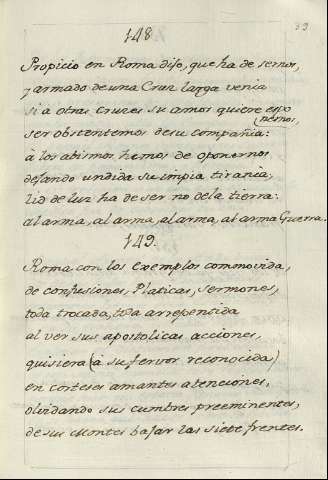 39
148
Propicio en Roma dijo, que ha de sernos,
y armado de una Cruz larga venia
si a otras cruzes su amor quiere expo
nernos,
ser obstentemos de su compañia:
à los abismos hemos de oponernos
dejando undida su impia tirania;
lid de luz ha de ser no de la tierra:
al arma, al arma, al arma, al arma Guerra.
149.
Roma con los exemplos commovida,
de confusiones, Platicas, sermones,
toda trocada, toda arrepentida
al ver sus apostolicas acciones,
quisiera (à su fervor reconocida)
en corteses amantes atenciones,
olvidando sus cumbres preeminentes,
de sus montes bajar las siete frentes.